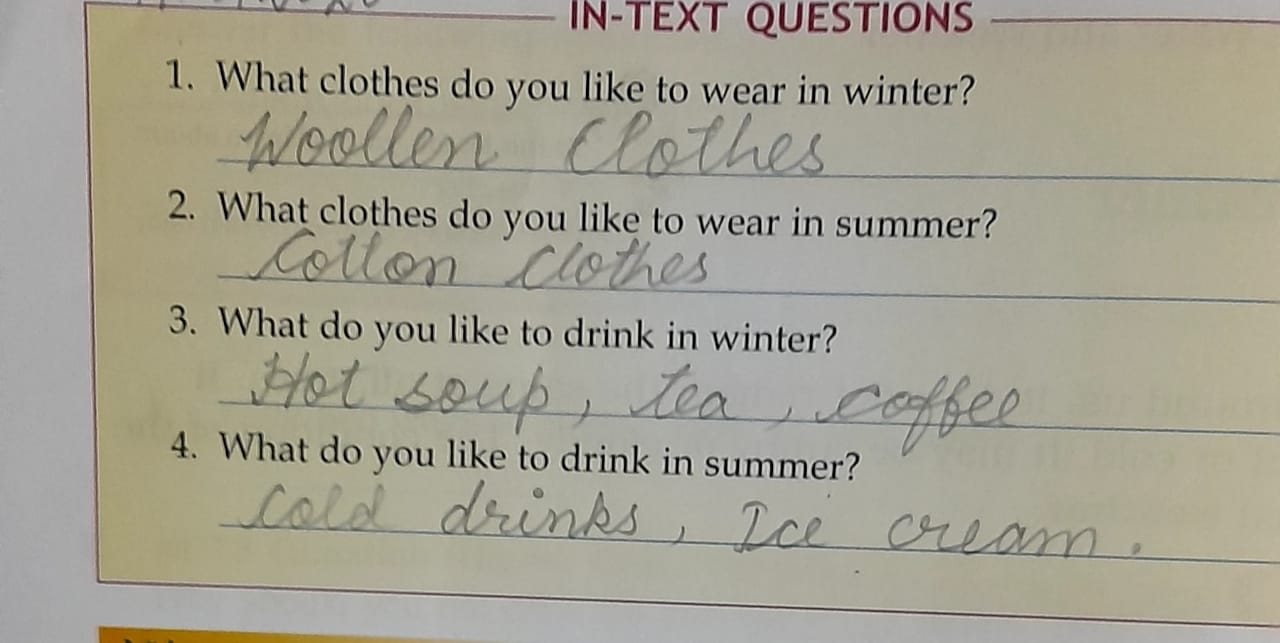 IN-TEXT QUESTIONS
1. What clothes do you like to wear in winter?
Woollen Clothes
2. What clothes do you like to wear in summer?
Cotton Clothes
3. What do you like to drink in winter?
Hot soup, tea, coffee
4. What do you like to drink in summer?
Cold drinks, Ice cream.